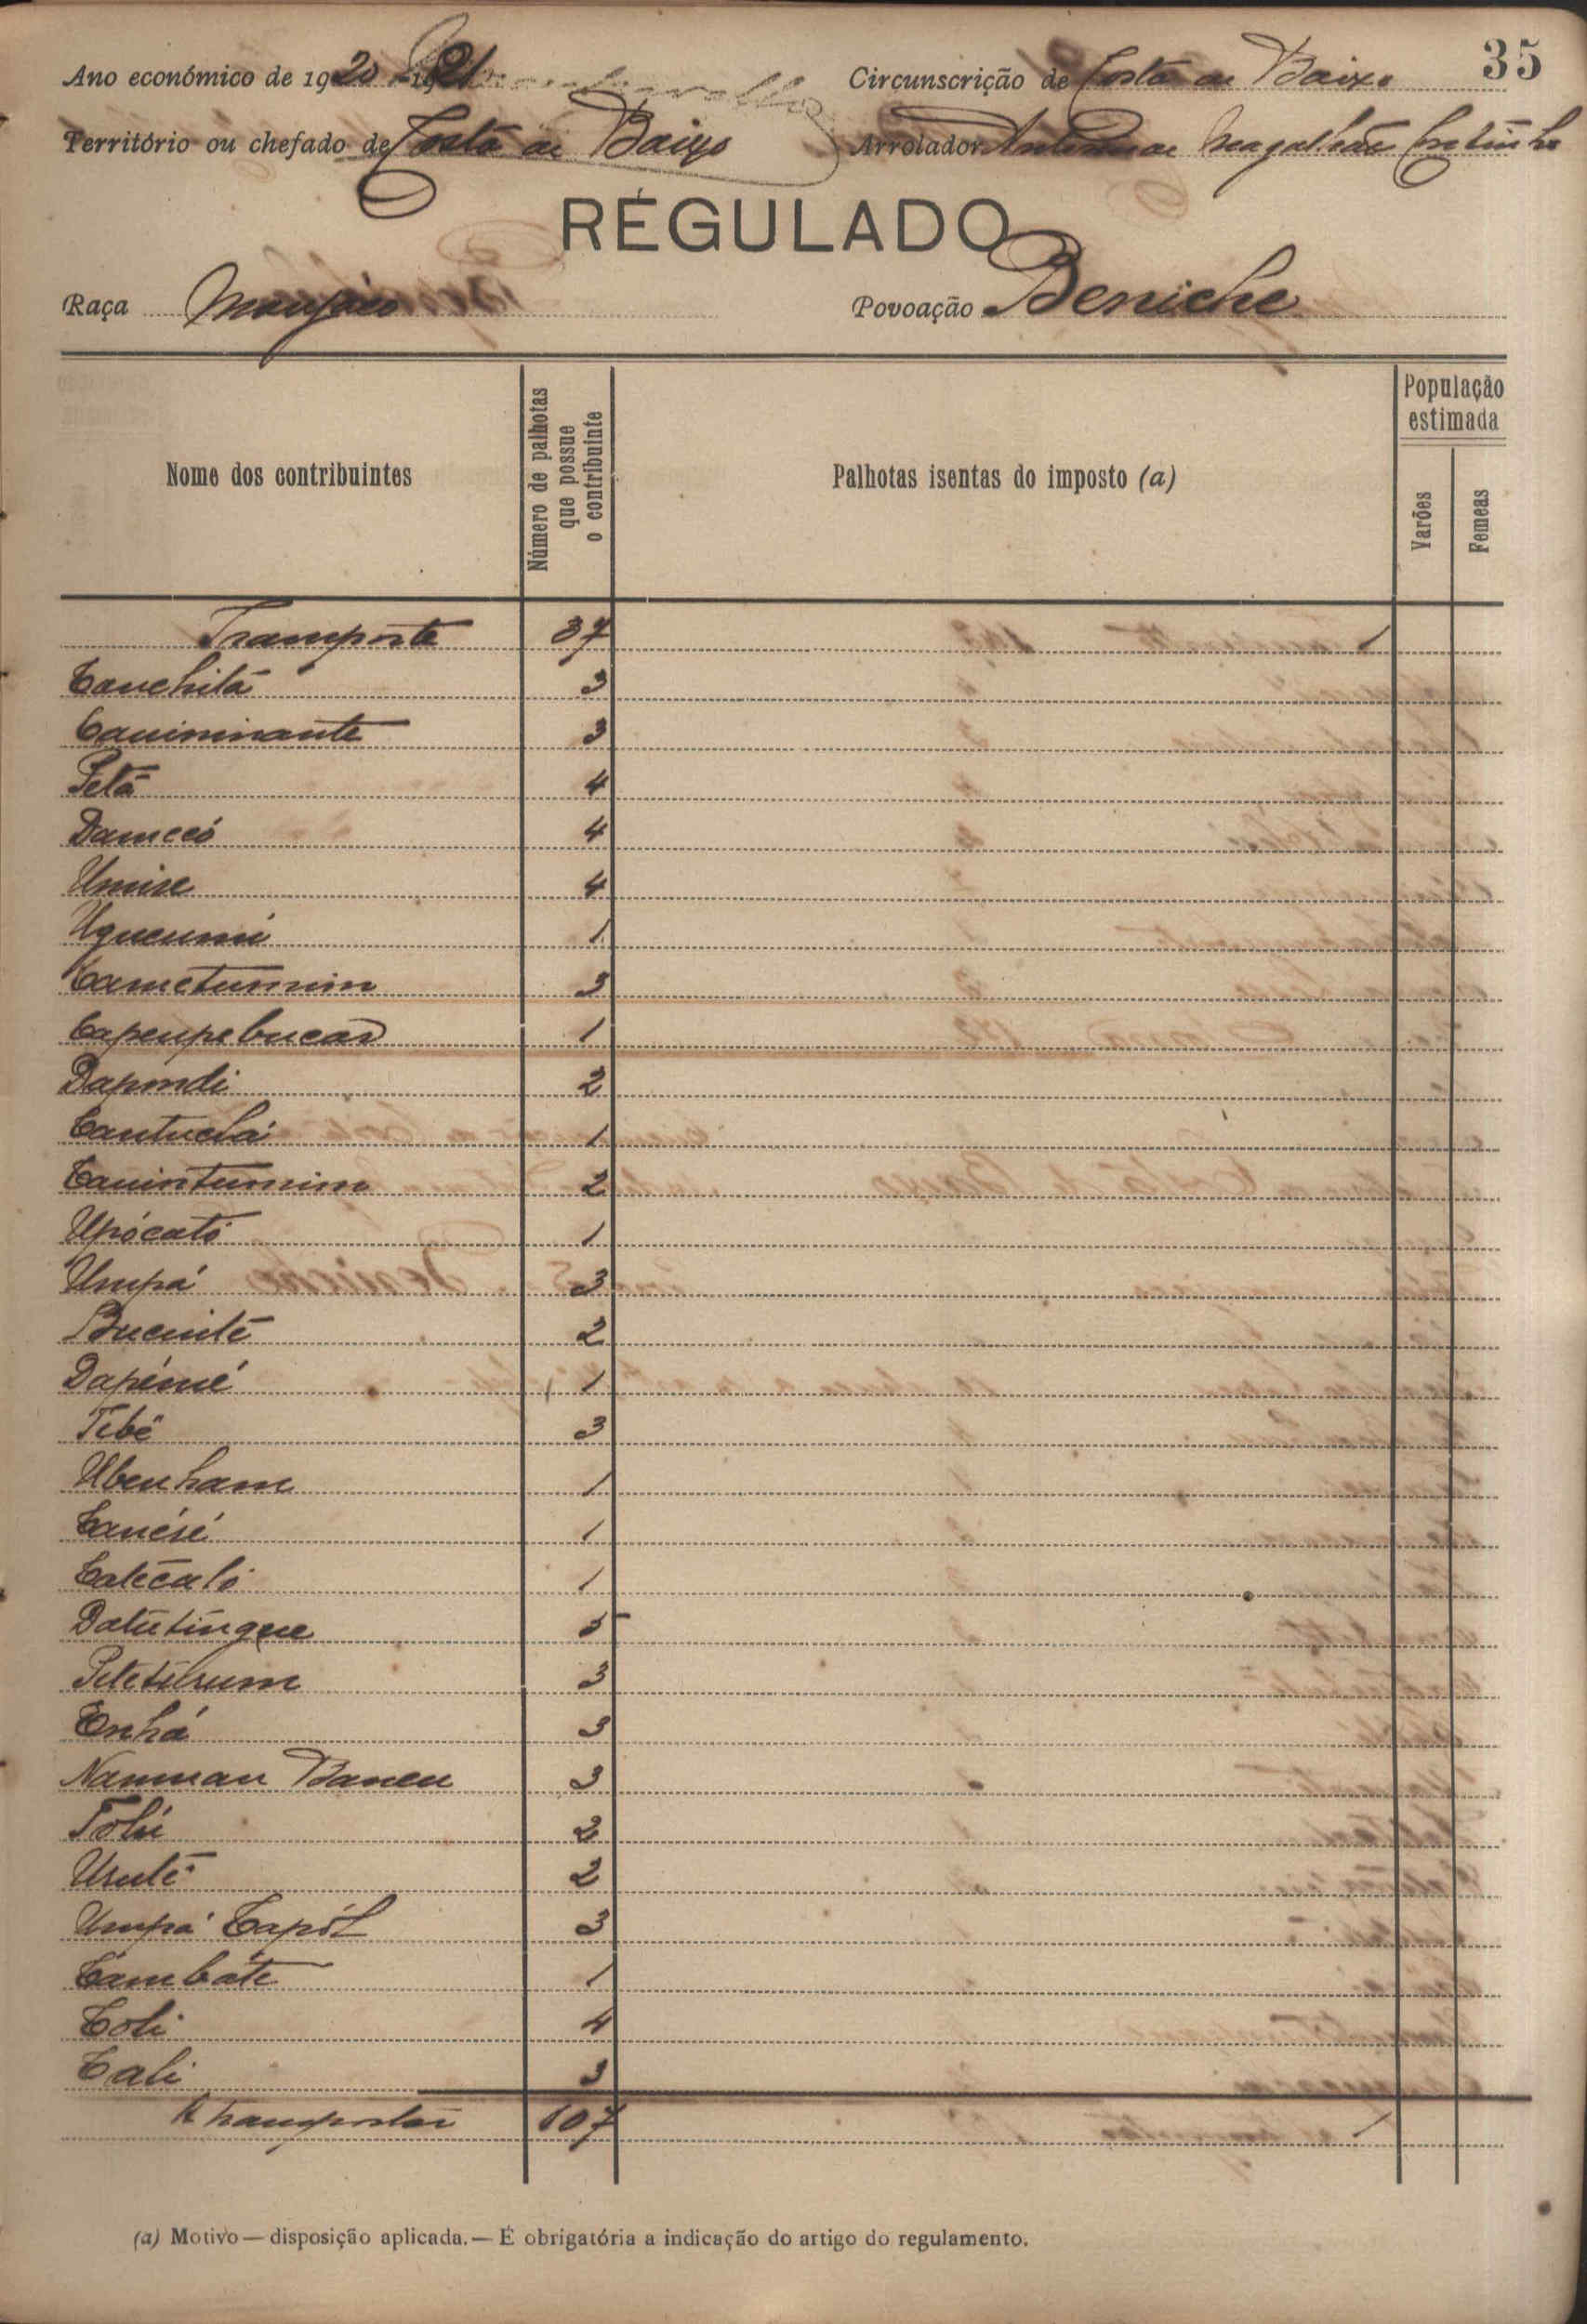 35
Ano económico de 1920-1921 Circunscrição de Costa de Baixo
Território ou chefado de Costa de Baixo Arrolador Antonio de Magalhães
RÉGULADO
Raça Manjaco Povoação Beniche
Nome dos contribuintes
Número de palhotas que possue o contribuinte
Palhotas isentas do imposto (a)
População estimada
Varões
Femeas
Transporte 37 1
Canchitá 3
Caniminante 3
Petá 4
Dameó 4
Umise 4
Uquecumú 1
Cametumnim 3
Capeupebucar 1
Dapondi 2
Cantuchá 1
Canintumim 2
Upócató 1
Umpá 3
Bucinté 2
Dapémé 1
Tibé 3
Ubenham 1
Canésé 1
Catécaló 1
Datutingue 5
Petetibrum 3
Enhá 3
Namuan Baneu 3
Tolú 2
Usuté 2
Umpá Capól 3
Cambáte 1
Coli 4
Cali 3
A transportar 107 1
(a) Motivo — disposição aplicada. — É obrigatória a indicação do artigo do regulamento.